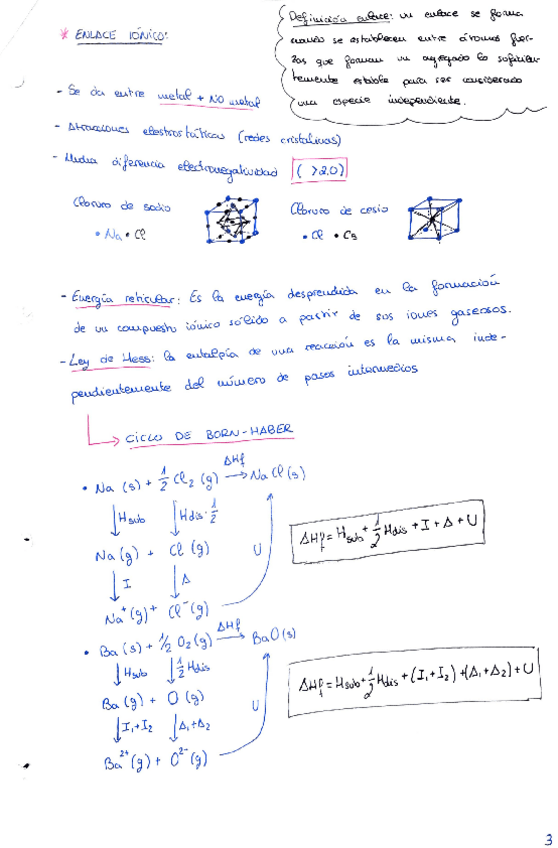 * ENLACE IÓNICO:
Definición enlace: un enlace se forma
cuando se establecen entre átomos fuer-
zas que forman un agregado lo suficien-
temente estable para ser considerado
una especie independiente.
- Se da entre metal + NO metal
- Atracciones electrostáticas (redes cristalinas)
- Mucha diferencia electronegatividad (>2.0)
Cloruro de sodio
• Na • Cl
Cloruro de cesio
• Cl • Cs
- Energía reticular: Es la energía desprendida en la formación
de un compuesto iónico sólido a partir de sus iones gaseosos.
- Ley de Hess: la entalpía de una reacción es la misma inde-
pendientemente del número de pasos intermedios
CICLO DE BORN-HABER
• Na (s) + 1/2 Cl₂ (g) ΔHf → NaCl (s)
↓ Hsub ↓ Hdis · 1/2
Na (g) + Cl (g) U
↓ I ↓ A
Na⁺ (g) + Cl⁻ (g)
ΔHf = Hsub + 1/2 Hdis + I + A + U
• Ba (s) + 1/2 O₂ (g) ΔHf → BaO (s)
↓ Hsub ↓ 1/2 Hdis
Ba (g) + O (g) U
↓ I₁+I₂ ↓ A₁+A₂
Ba²⁺ (g) + O²⁻ (g)
ΔHf = Hsub + 1/2 Hdis + (I₁+I₂) + (A₁+A₂) + U
3